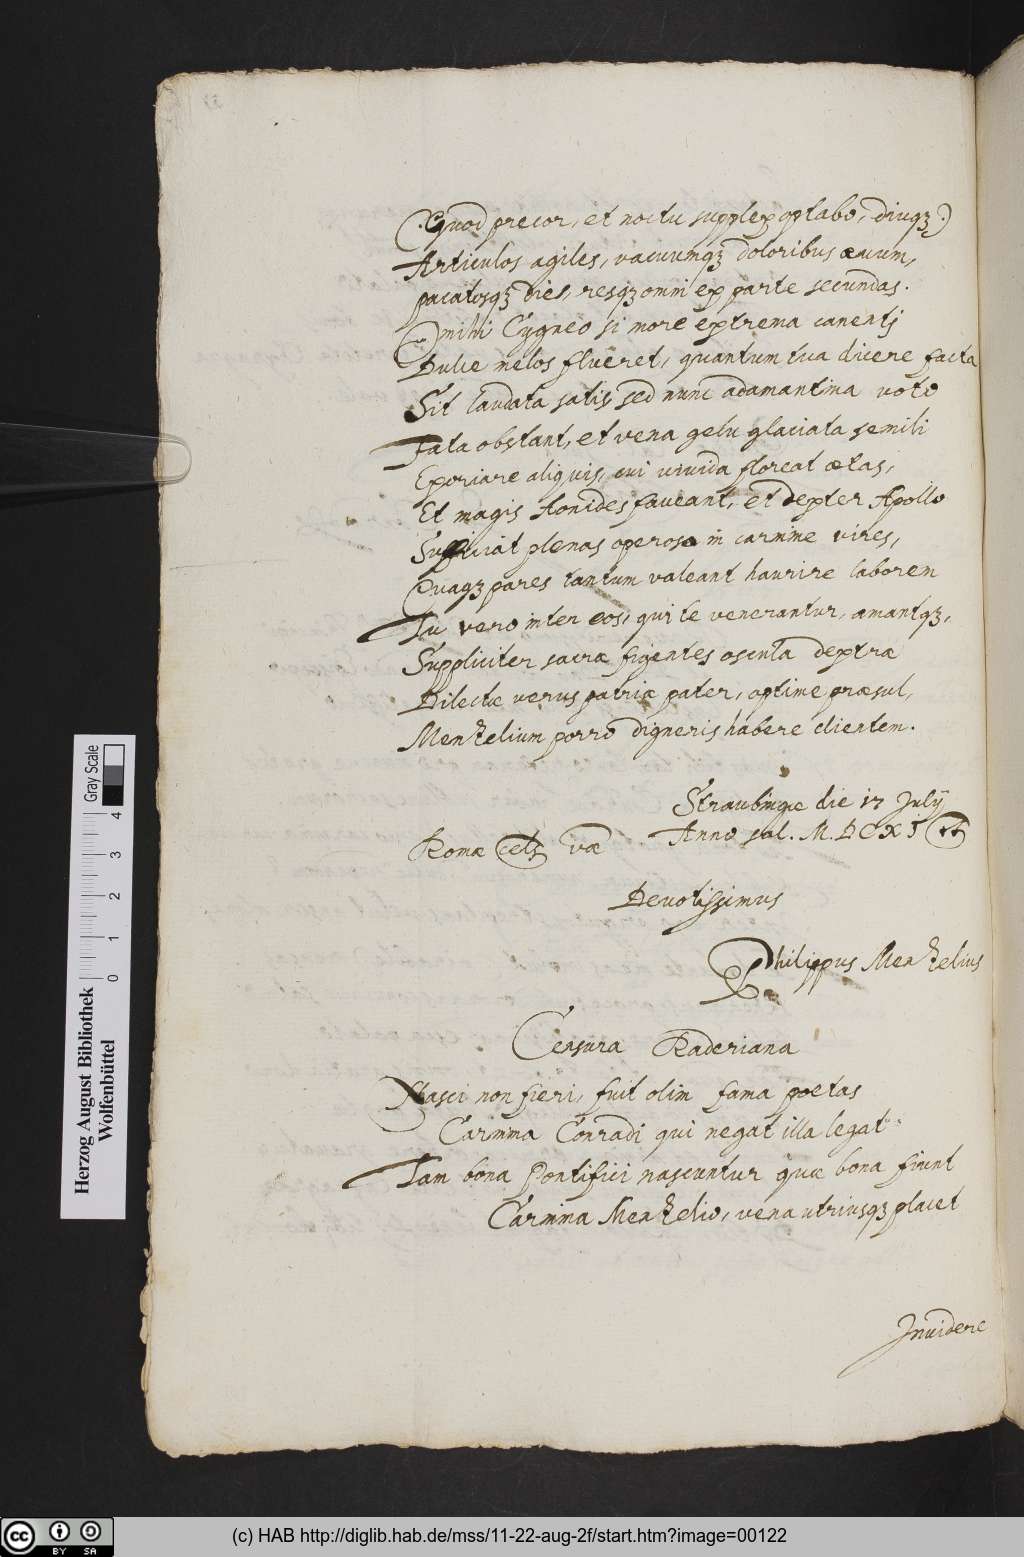 (Quod precor, et noctu supplex optabo, diuqꝫ.)
Articulos agiles, vacuumqꝫ doloribus æuum,
pacatosqꝫ dies, resqꝫ omni ex parte secundas.
O mihi Cygneo si more extrema canenti
Dulce melos flueret, quantum tua dicere facta
Sit laudata satis, sed nunc adamantina voto
Fata obstant, et vena gelu glaciata senili
Exoriare aliquis, cui viuida floreat ætas,
Et magis Aonides faueant, et dexter Apollo
Sufficiat plenas operoso in carmine vires,
Quaqꝫ pares tantum valeant haurire laborem
Tu vero inter eos, qui te venerantur, amantqꝫ,
Suppliciter sacræ figentes oscula dextræ
Dilectæ verus patriæ pater, optime præsul,
Menzelium porro digneris habere clientem.
Straubingæ die 17 July
Anno sal. M. DCXI
Romæ Cels væ
Deuotissimus
Philippus Menzelius
Censura Raderiana
Nasci non fieri, fuit olim fama poetas
Carmina Conradi qui negat illa legat:
Tam bona Pontifici nascuntur quæ bona fiunt
Carmina Menzelio, vena utriusqꝫ placet
Inuidere
Herzog August Bibliothek
Wolfenbüttel
0 1 2 3 4
Gray Scale
cc BY SA
(c) HAB http://diglib.hab.de/mss/11-22-aug-2f/start.htm?image=00122